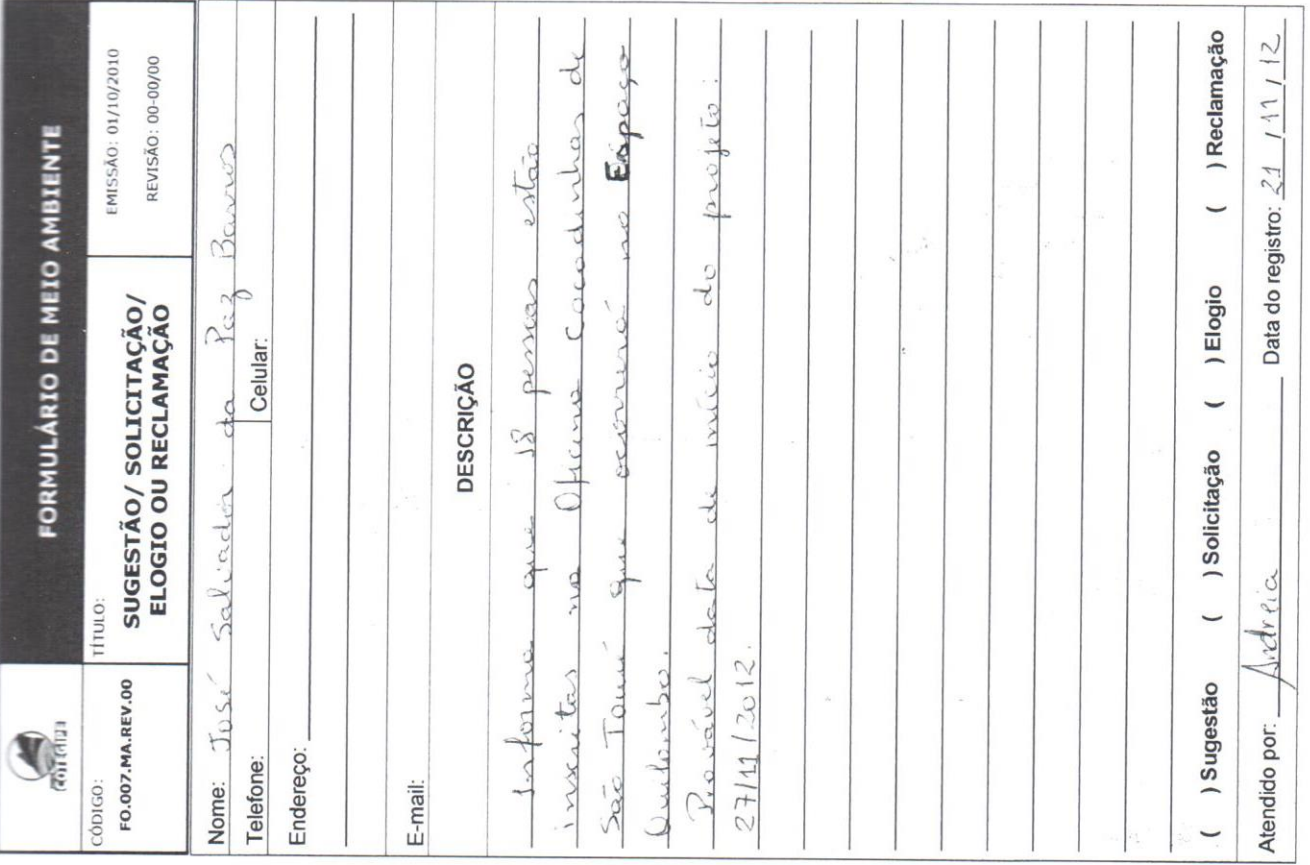 FORMULÁRIO DE MEIO AMBIENTE
CÓDIGO:
FO.007.MA.REV.00
TÍTULO:
SUGESTÃO/ SOLICITAÇÃO/
ELOGIO OU RECLAMAÇÃO
EMISSÃO: 01/10/2010
REVISÃO: 00-00/00
Nome: José Salvador da Paz Barros
Telefone:
Celular:
Endereço:
E-mail:
DESCRIÇÃO
Informa que 18 pessoas estão
inscritas na Oficina Cocadinhas de
São Tomé que ocorrerá no Espaço
Quilombo.
Provável data de início do projeto:
27/11/2012.
( ) Sugestão ( ) Solicitação ( ) Elogio ( ) Reclamação
Atendido por: Andreia Data do registro: 21/11/12